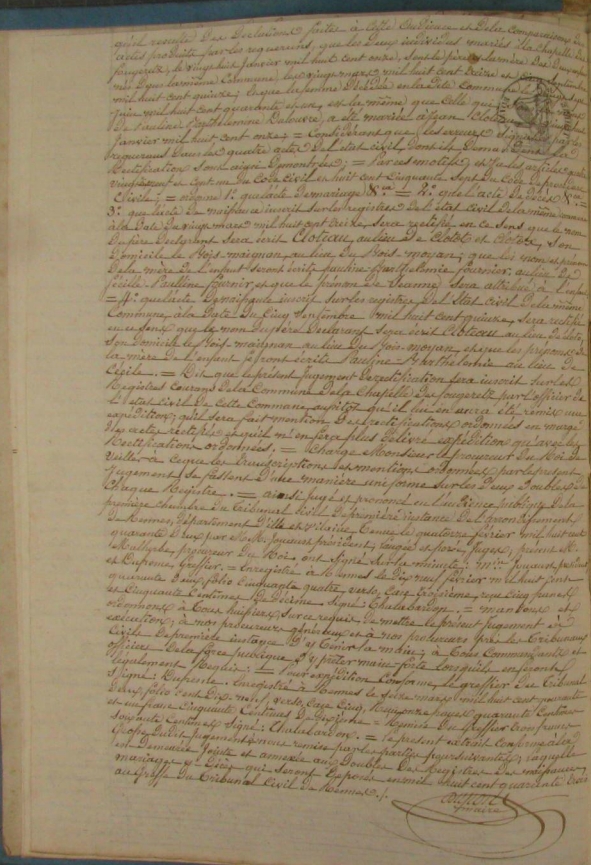 qu'il résulte des déclarations faites à cette audience et de la comparaison des
actes produits par les requérants, que les deux individus mariés à la Chapelle des
fougeretz, le vingt huit janvier mil huit cent onze, sont les père et mère des deux
nés dans la même Commune les vingt mars mil huit cent treize et cinq
mil huit cent quinze, et que la femme décédée en la dite Commune le
juin mil huit cent quarante et un, est la même que celle qui
de Pauline Barthélemie a été mariée à Jean Cloteau
janvier mil huit cent onze; = Considérant que les erreurs signalées par les
requérants dans les quatre actes de l'état civil dont ils demandent la
Rectification sont ainsi démontrées; = Par ces motifs et vu les articles quatre
vingt dix neuf et cent un du Code civil et huit cent cinquante sept du Code de procédure
Civile; = 1° que l'acte de mariage &ca = 2° que l'acte de décès &ca
3° que l'acte de naissance inscrit sur les registres de l'état civil de la même commune
à la date du vingt mars mil huit cent treize, sera rectifié en ce sens que le nom
du père déclarant sera écrit Cloteau au lieu de Clotot et Cloteu, son
domicile le Bois-maignan, au lieu de Bois-moyan; que les noms et prénoms
de la mère de l'enfant seront écrits pauline Barthelemie fournier, au lieu de
fécille Paulline fournier et que le prénom de Jeanne sera attribué à l'enfant
= 4° que l'acte de naissance inscrit sur les registres de l'état civil de la même
Commune, à la date du cinq septembre mil huit cent quinze, sera rectifié
en ce sens que le nom du père déclarant sera écrit Cloteau au lieu de Cloteu,
son domicile le Bois-maignan au lieu du Bois-moyan, et que les prénoms de
la mère de l'enfant seront écrits Pauline-Barthelemie au lieu de
Cécile. = Dit que le présent Jugement de rectification sera inscrit sur les
Registres courans de la Commune de la Chapelle des fougeretz par l'officier de
l'état civil de cette Commune aussitôt qu'il lui en aura été remis une
expédition; qu'il sera fait mention des rectifications ordonnées en marge
des actes rectifiés et qu'il n'en sera plus délivré expédition qu'avec les
Rectifications ordonnées. = Charge Monsieur le procureur du Roi de
veiller à ce que les transcriptions et mentions ordonnées par le présent
Jugement, se fassent d'une manière uniforme sur les deux doubles de
chaque Registre. = ainsi jugé et prononcé en l'audience publique de la
première chambre du tribunal civil de première instance de l'arrondissement
de Rennes, département d'Ille et vilaine tenue le quatorze février mil huit cent
quarante deux par M.M. Jouaust président, juges, présent M.
procureur du Roi, ont signé sur la minute: Mrs Jouaust président
et Dufresne, Greffier. = Enregistré à Rennes le dix neuf février mil huit cent
quarante deux folio cinquante quatre, verso, Case troisième, reçu cinq francs
et cinquante centimes de décime. Signé: Chalabardon. = mandons et
ordonnons à tous huissiers, sur ce requis de mettre le présent jugement à
exécution; à nos procureurs généraux et à nos procureurs près les tribunaux
Civils de première instance d'y tenir la main; à tous Commandants et
officiers de la force publique d'y prêter main forte lorsqu'ils en seront
légalement Requis; = Pour expédition Conforme, le greffier du tribunal
signé: Dufresne. Enregistré à Rennes le seize mars mil huit cent quarante
deux folio cent dix neuf, verso, Case cinq, Reçu onze francs quarante centimes
et un franc cinquante centimes de dixième = Remise du greffier trois francs
soixante centimes signé: Chalabardon. = Le présent extrait conforme à la
Grosse dudit jugement à nous remise par les parties poursuivantes, laquelle
en demeure jointe et annexée aux doubles des Registres des naissances,
mariages et Décès qui seront déposés en mil huit cent quarante trois
au Greffe du Tribunal Civil de Rennes./.
maire